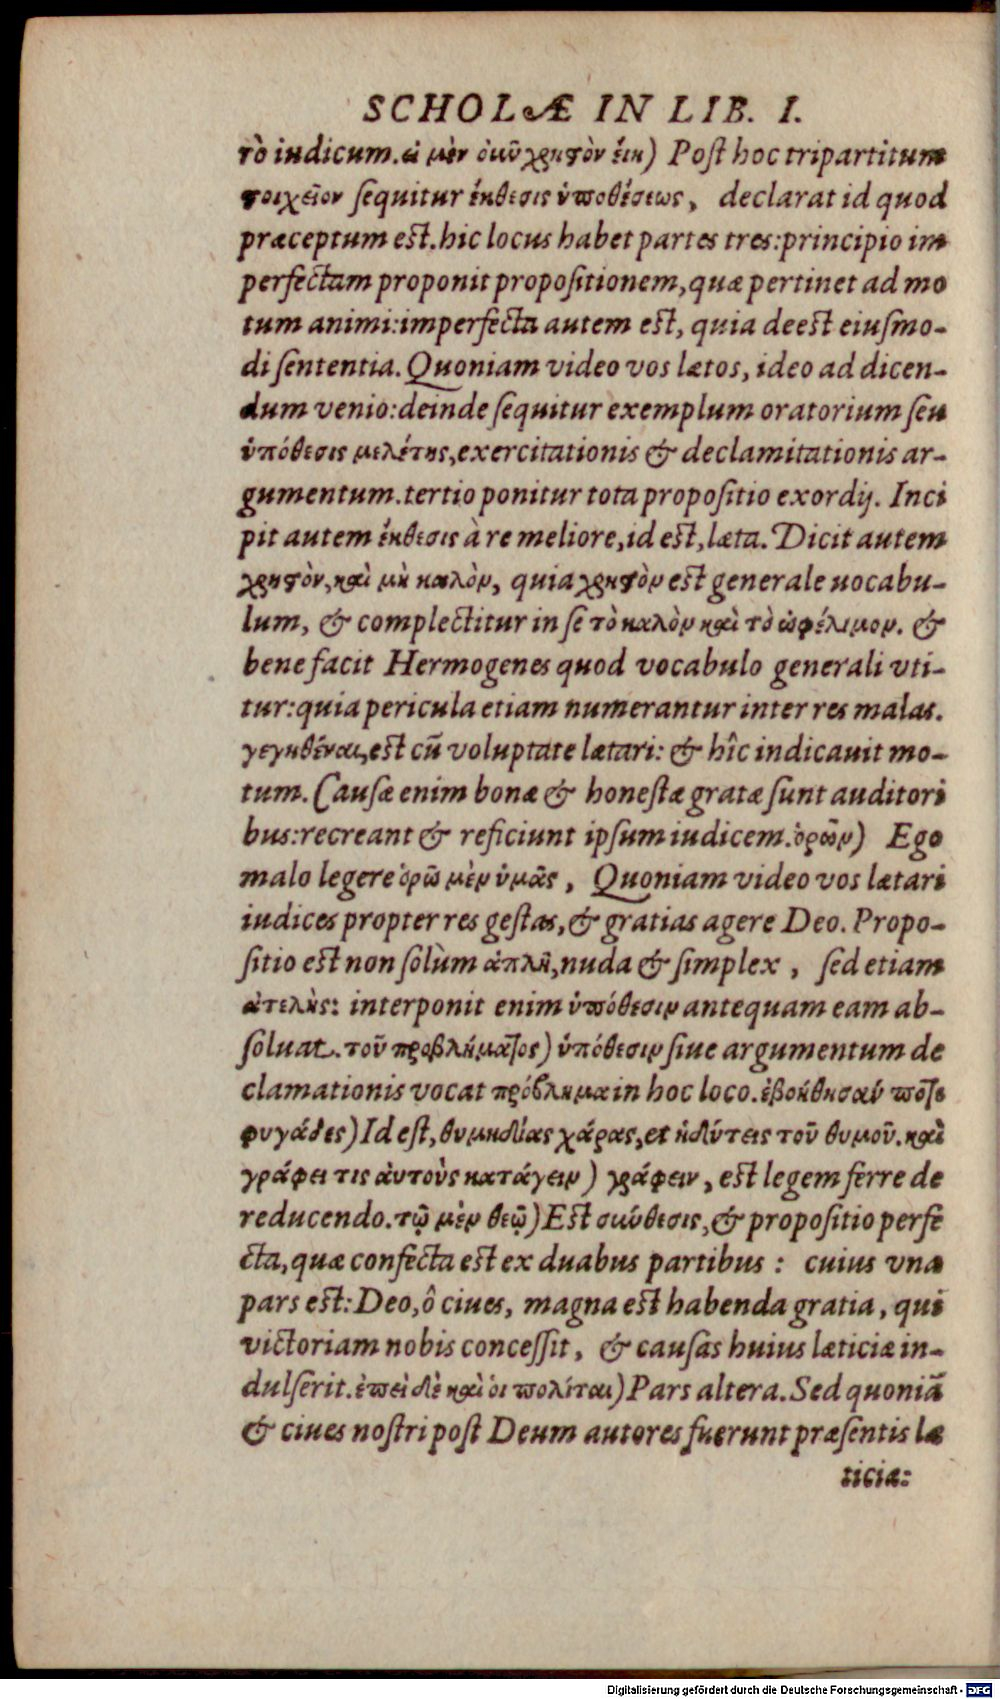 SCHOLÆ IN LIB. I.
τὸ iudicum. εἰ μὲν οὖν χρηστὸν εἴη) Post hoc tripartitum
στοιχεῖον sequitur ἔκθεσις ὑποθέσεως, declarat id quod
præceptum est. hic locus habet partes tres: principio im
perfectam proponit propositionem, quæ pertinet ad mo
tum animi: imperfecta autem est, quia deest eiusmo-
di sententia. Quoniam video vos lætos, ideo ad dicen-
dum venio: deinde sequitur exemplum oratorium seu
ὑπόθεσις μελέτης, exercitationis & declamitationis ar-
gumentum. tertio ponitur tota propositio exordij. Inci
pit autem ἔκθεσις à re meliore, id est, læta. Dicit autem
χρηστὸν, καὶ μὴ καλὸν, quia χρηστὸν est generale uocabu-
lum, & complectitur in se τὸ καλὸν καὶ τὸ ὠφέλιμον. &
bene facit Hermogenes quod vocabulo generali vti-
tur: quia pericula etiam numerantur inter res malas.
γεγηθέναι, est cū voluptate lætari: & hîc indicauit mo-
tum. Causæ enim bonæ & honestæ gratæ sunt auditori
bus: recreant & reficiunt ipsum iudicem. ὁρῶν) Ego
malo legere ὁρῶ μὲν ὑμᾶς, Quoniam video vos lætari
iudices propter res gestas, & gratias agere Deo. Propo-
sitio est non solùm ἁπλῆ, nuda & simplex, sed etiam
ἀτελὴς: interponit enim ὑπόθεσιν antequam eam ab-
soluat. τοῦ προβλήματος) ὑπόθεσιν siue argumentum de
clamationis vocat πρόβλημα in hoc loco. ἐβοήθησαύ ποτε
φυγάδες) Id est, θυμηδίας χάρας, et ἡδύτεις τοῦ θυμοῦ. καὶ
γράφει τις ἀυτοὺς κατάγειν) γράφειν, est legem ferre de
reducendo. τῷ μὲν θεῷ) Est σύνθεσις, & propositio perfe
cta, quæ confecta est ex duabus partibus: cuius vna
pars est: Deo, ô ciues, magna est habenda gratia, qui
victoriam nobis concessit, & causas huius læticiæ in-
dulserit. ἐπεὶ δὲ καὶ οἱ πολίται) Pars altera. Sed quoniā
& ciues nostri post Deum autores fuerunt præsentis læ
ticiæ:
Digitalisierung gefördert durch die Deutsche Forschungsgemeinschaft - DFG